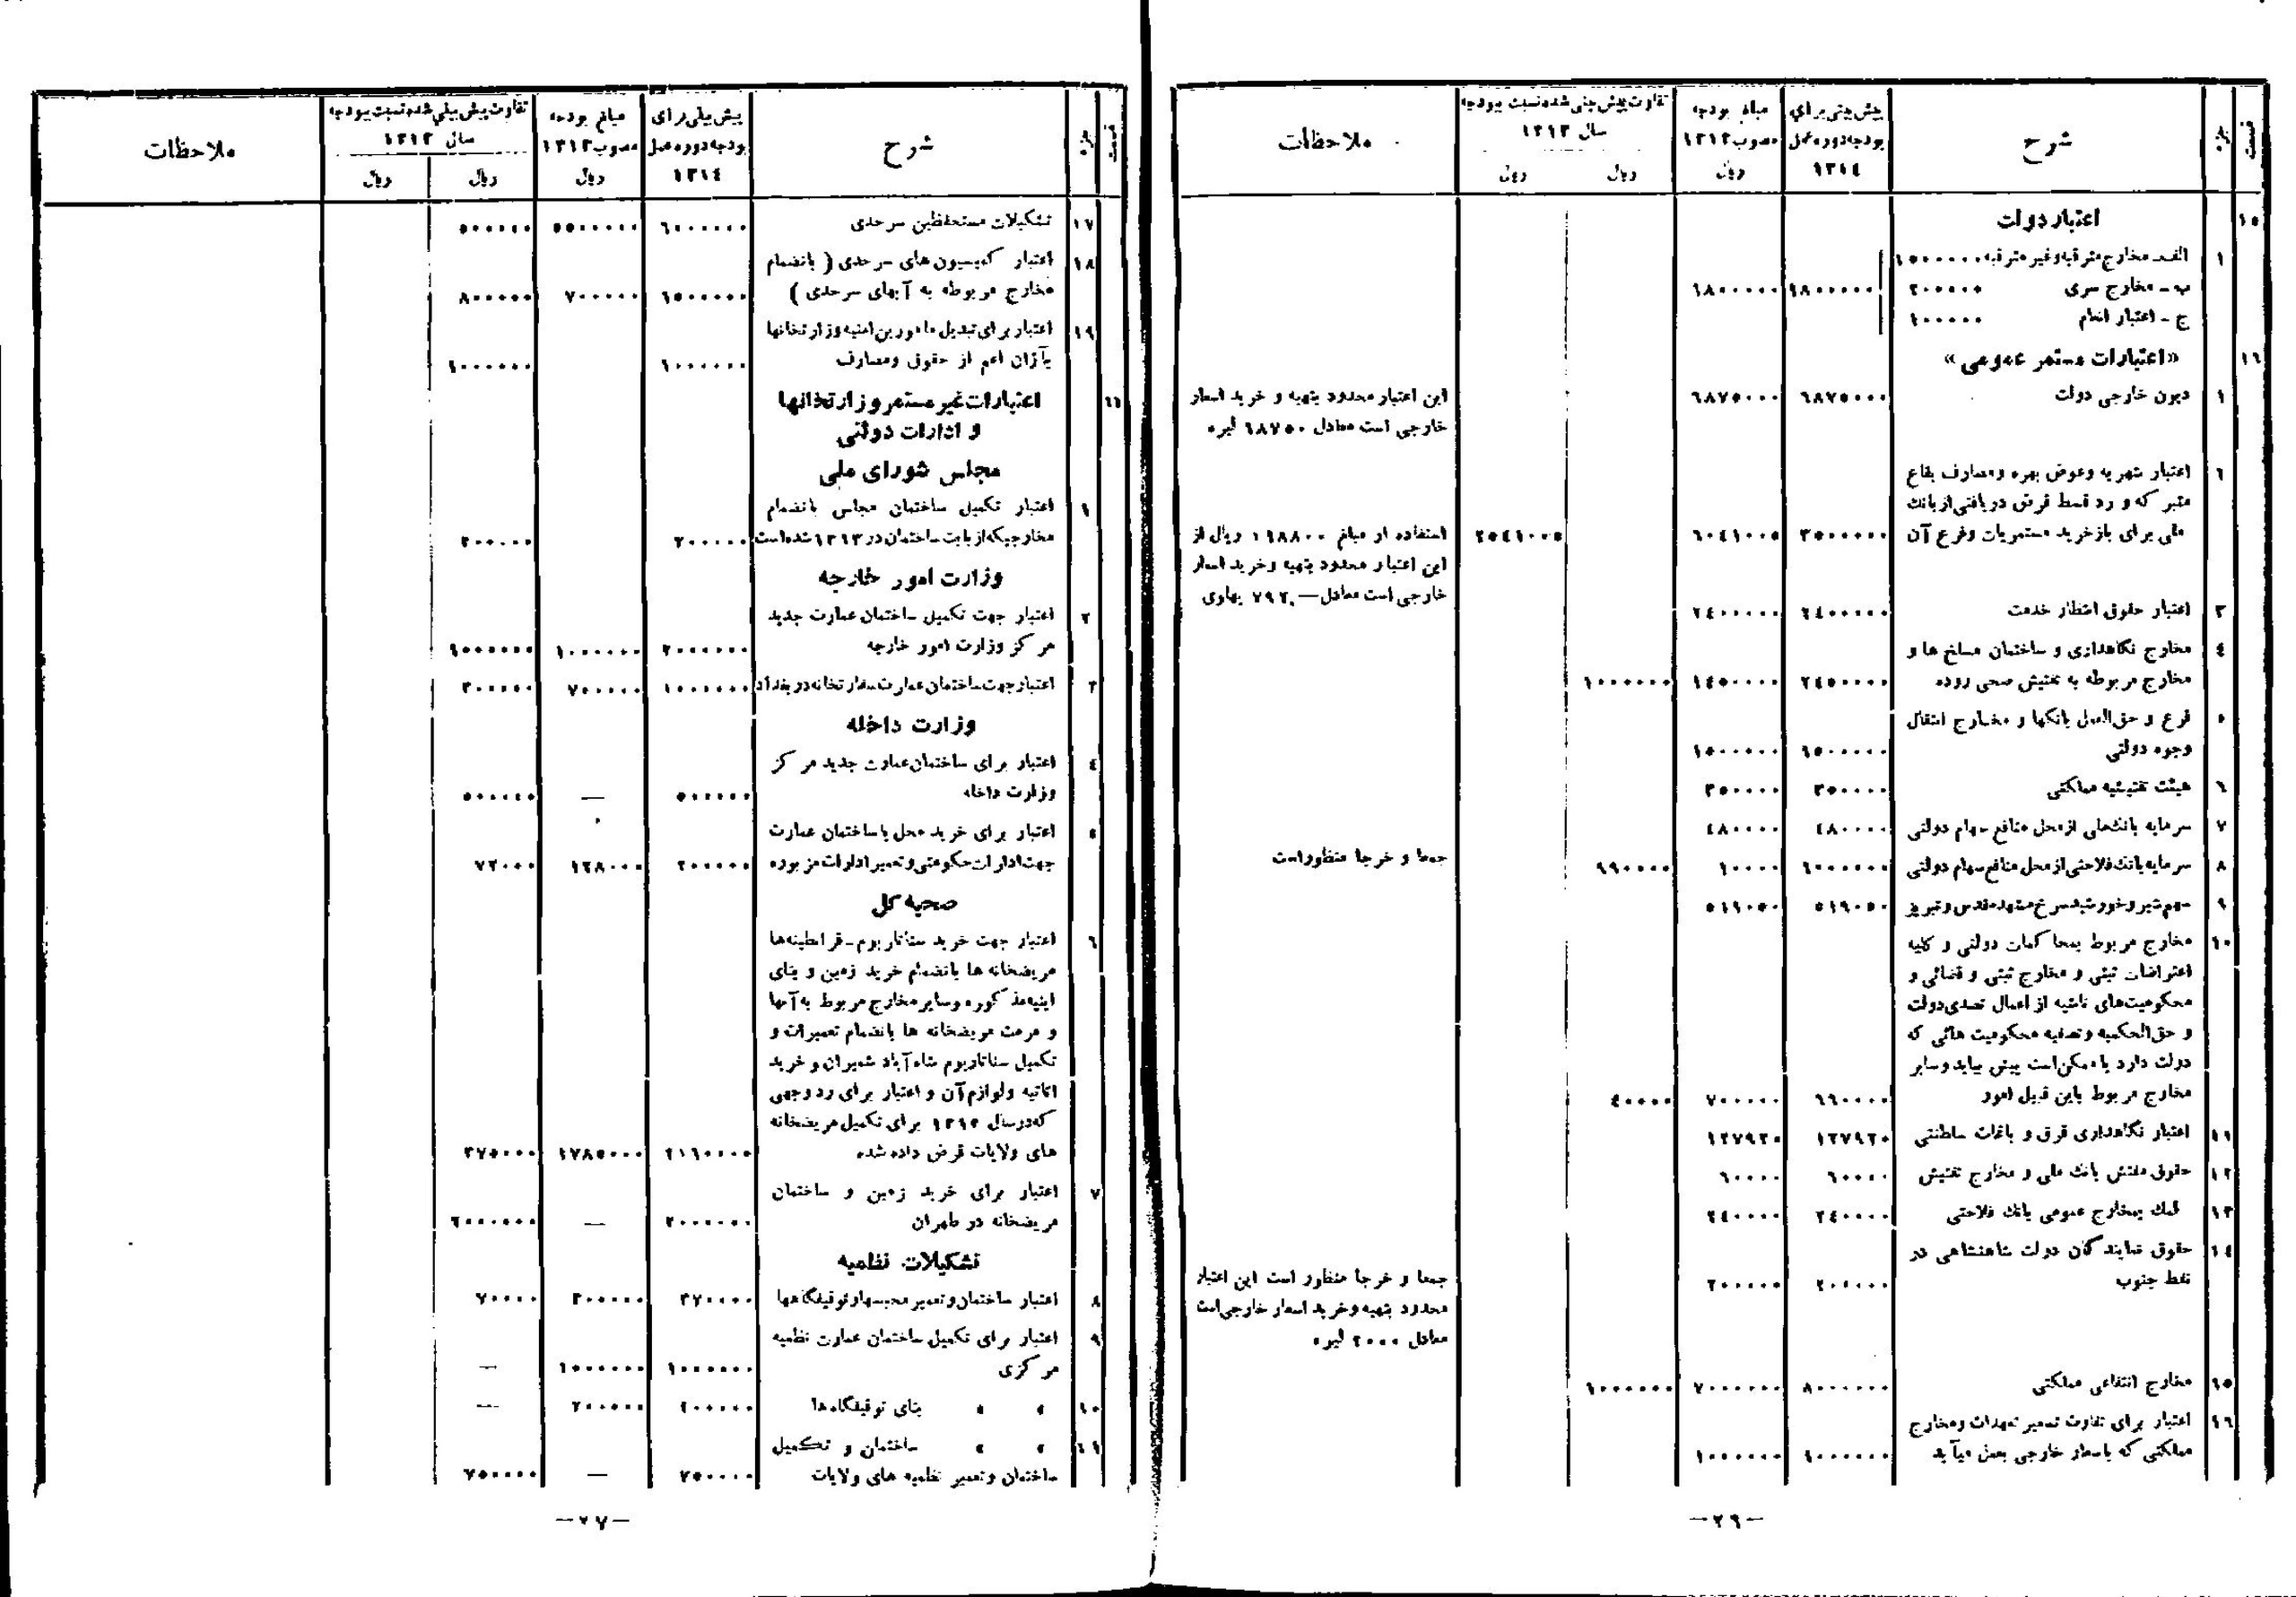 قسمت | جزء | شرح | پیش بینی برای بودجه دوره عمل ۱۳۱٤ | مبلغ بودجه مصوب ۱۳۱۳ ریال | تفاوت پیش بینی شده نسبت ببودجه سال ۱۳۱۳ ریال | ریال | ملاحظات
۱٥ اعتبار دولت
۱ الف ـ مخارج مترقبه و غیر مترقبه ۱٥۰۰۰۰۰۰
ب ـ مخارج سری ۲۰۰۰۰۰۰ | ۱۸۰۰۰۰۰۰ | ۱۸۰۰۰۰۰۰
ج ـ اعتبار انعام ۱۰۰۰۰۰۰
۱٦ «اعتبارات مستمر عمومی»
۱ دیون خارجی دولت | ٦۸۷٥۰۰۰ | ٦۸۷٥۰۰۰ | این اعتبار محدود بتهیه و خرید اسعار
خارجی است معادل ٦۸۷٥۰ لیره
۲ اعتبار شهریه و عوض بهره و مصارف بقاع
متبرکه و رد قسط قرض دریافتی از بانک
ملی برای بازخرید مستمریات و فرع آن | ۳٥۰۰۰۰۰ | ٦۰٤۱۰۰۰ | ۲٥٤۱۰۰۰ | استفاده از مبلغ ۱۱۸۸۰۰ ریال از
این اعتبار محدود بتهیه و خرید اسعار
خارجی است معادل — ۷۹۲ پهلوی
۳ اعتبار حقوق انتظار خدمت | ۲٤۰۰۰۰۰ | ۲٤۰۰۰۰۰
٤ مخارج نگاهداری و ساختمان مسلخ ها و
مخارج مربوطه به تفتیش صحی روده | ۲٤٥۰۰۰۰ | ۱٤٥۰۰۰۰ | ۱۰۰۰۰۰۰
٥ فرع و حق‌العمل بانکها و مخارج انتقال
وجوه دولتی | ۱٥۰۰۰۰۰ | ۱٥۰۰۰۰۰
٦ هیئت تفتیشیه مملکتی | ۳٥۰۰۰۰ | ۳٥۰۰۰۰
۷ سرمایه بانک ملی از محل منافع سهام دولتی | ٤۸۰۰۰۰ | ٤۸۰۰۰۰
۸ سرمایه بانک فلاحتی از محل منافع سهام دولتی | ۱۰۰۰۰۰۰ | ۱۰۰۰۰ | ۹۹۰۰۰۰ | جمعا و خرجا منظور است
۹ سهم شیر و خورشید سرخ مشهد مقدس و تبریز | ٥۱۹۰٥۰ | ٥۱۹۰٥۰
۱۰ مخارج مربوط بمحاکمات دولتی و کلیه
اعتراضات ثبتی و مخارج ثبتی و قضائی و
محکومیت‌های ناشیه از اعمال تصدی دولت
و حق‌الحکمیه و تصفیه محکومیت هائی که
دولت دارد یا ممکن است پیش بیاید و سایر
مخارج مربوط باین قبیل امور | ٦٦۰۰۰۰ | ۷۰۰۰۰۰ | ٤۰۰۰۰
۱۱ اعتبار نگاهداری قرق و باغات سلطنتی | ۱۲۷۹۲۰ | ۱۲۷۹۲۰
۱۲ حقوق مفتش بانک ملی و مخارج تفتیش | ٦۰۰۰۰ | ٦۰۰۰۰
۱۳ کمک بمخارج عمومی بانک فلاحتی | ۲٤۰۰۰۰ | ۲٤۰۰۰۰
۱٤ حقوق نمایندگان دولت شاهنشاهی در
نفط جنوب | ۲۰۰۰۰۰ | ۲۰۰۰۰۰ | جمعا و خرجا منظور است این اعتبار
محدود بتهیه و خرید اسعار خارجی است
معادل ۲۰۰۰ لیره
۱٥ مخارج انتفاعی مملکتی | ۸۰۰۰۰۰۰ | ۷۰۰۰۰۰۰ | ۱۰۰۰۰۰۰
۱٦ اعتبار برای تفاوت تسعیر تعهدات و مخارج
مملکتی که باسعار خارجی بعمل میآید | ۱۰۰۰۰۰۰ | ۱۰۰۰۰۰۰
—۲٦—
قسمت | جزء | شرح | پیش بینی برای بودجه دوره عمل ۱۳۱٤ | مبلغ بودجه مصوب ۱۳۱۳ ریال | تفاوت پیش بینی شده نسبت ببودجه سال ۱۳۱۳ ریال | ریال | ملاحظات
۱۷ تشکیلات مستحفظین سرحدی | ٦۰۰۰۰۰۰ | ٥٥۰۰۰۰۰ | ٥۰۰۰۰۰
۱۸ اعتبار کمیسیون های سرحدی ( بانضمام
مخارج مربوطه به آبهای سرحدی ) | ۱٥۰۰۰۰۰ | ۷۰۰۰۰۰ | ۸۰۰۰۰۰
۱۹ اعتبار برای تبدیل مامورین امنیه وزارتخانها
بآژان اعم از حقوق و مصارف | ۱۰۰۰۰۰۰ | ۱۰۰۰۰۰۰
اعتبارات غیر مستمر وزارتخانها
و ادارات دولتی
مجلس شورای ملی
۱ اعتبار تکمیل ساختمان مجلس بانضمام
مخارجیکه از بابت ساختمان در ۱۳۱۳ شده است | ۲۰۰۰۰۰ | ۲۰۰۰۰۰
وزارت امور خارجه
۲ اعتبار جهت تکمیل ساختمان عمارت جدید
مرکز وزارت امور خارجه | ۲۰۰۰۰۰۰ | ۱۰۰۰۰۰۰ | ۱۰۰۰۰۰۰
۳ اعتبار جهت ساختمان عمارت سفارتخانه در بغداد | ۱۰۰۰۰۰۰ | ۷۰۰۰۰۰ | ۳۰۰۰۰۰
وزارت داخله
٤ اعتبار برای ساختمان عمارت جدید مرکز
وزارت داخله | ٥۰۰۰۰۰ | — | ٥۰۰۰۰۰
٥ اعتبار برای خرید محل یا ساختمان عمارت
جهت ادارات حکومتی و تعمیر ادارات مزبوره | ۲۰۰۰۰۰ | ۱۲۸۰۰۰ | ۷۲۰۰۰
صحیه کل
٦ اعتبار جهت خرید ساناتوریوم ـ قرانطینه‌ها
مریضخانه ها بانضمام خرید زمین و بنای
ابنیه مذکوره و سایر مخارج مربوط به آنها
و مرمت مریضخانه ها بانضمام تعمیرات و
تکمیل ساناتوریوم شاه آباد شمیران و خرید
اثاثیه و لوازم آن و اعتبار برای رد وجهی
که در سال ۱۳۱۳ برای تکمیل مریضخانه
های ولایات قرض داده شده | ۲۱٦۰۰۰۰ | ۱۷۸٥۰۰۰ | ۳۷٥۰۰۰
۷ اعتبار برای خرید زمین و ساختمان
مریضخانه در طهران | ۲۰۰۰۰۰۰ | — | ۲۰۰۰۰۰۰
تشکیلات نظمیه
۸ اعتبار ساختمان و تعمیر محبسها و توقیفگاهها | ۳۷۰۰۰۰ | ۳۰۰۰۰۰ | ۷۰۰۰۰
۹ اعتبار برای تکمیل ساختمان عمارت نظمیه
مرکزی | ۱۰۰۰۰۰۰ | ۱۰۰۰۰۰۰ | —
۱۰ » » بنای توقیفگاه‌ها | ۲۰۰۰۰۰ | ۲۰۰۰۰۰ | —
۱۱ » » ساختمان و تکمیل
ساختمان و تعمیر نظمیه های ولایات | ۷٥۰۰۰۰ | — | ۷٥۰۰۰۰
—۲۷—